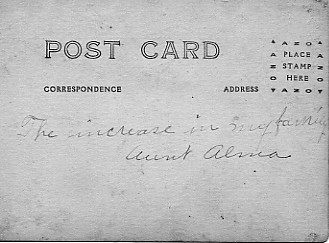 POST CARD
AZO
PLACE
STAMP
HERE
AZO
CORRESPONDENCE ADDRESS
The increase in my family
Aunt Alma